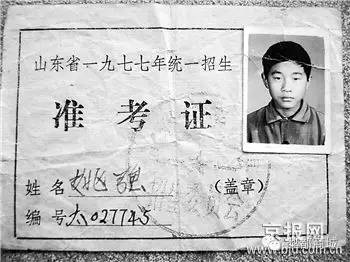 山东省一九七七年统一招生
准考证
姓名 姚强 （盖章）
编号 太027745
京报网
www.bjd.com.cn